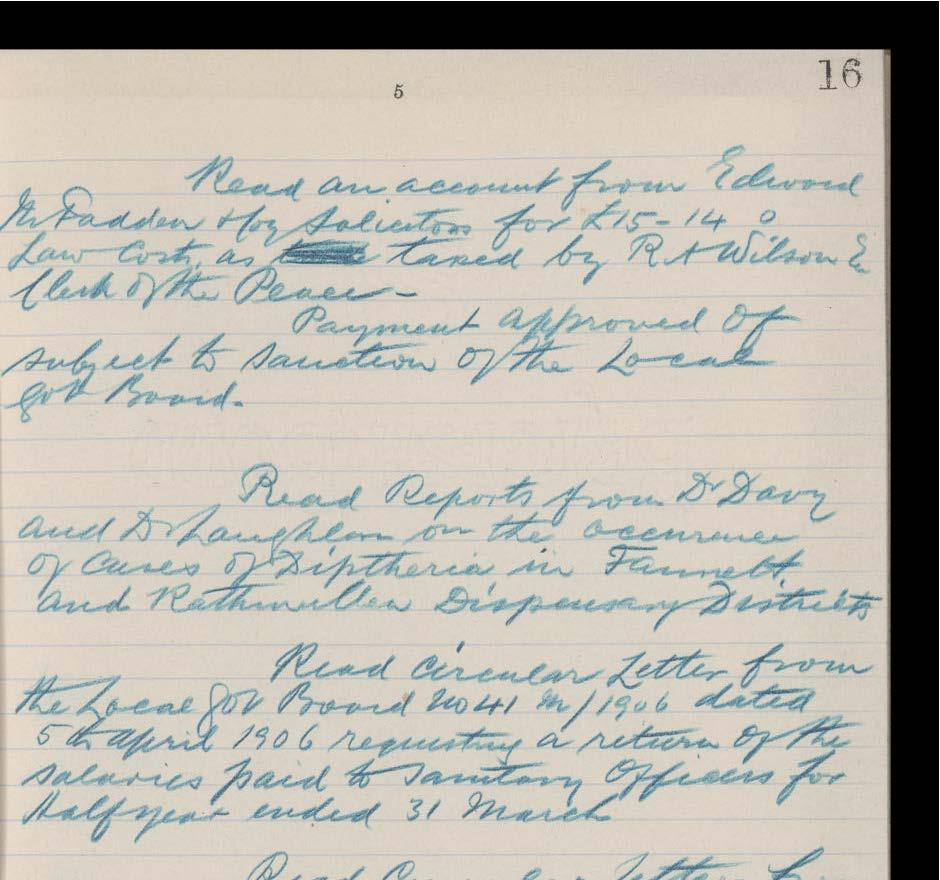 16
5
Read an account from Edward
McFadden Solicitors for £15-14 0
Law Costs, as taxed by R A Wilson
Clerk of the Peace -
Payment approved of
subject to sanction of the Local
Gov Board.
Read Reports from Dr Davy
and Dr Laughlin on the occurence
of cases of Diptheria in Fannett
and Rathmullen Dispensary Districts
Read Circular Letter from
the Local Gov Board No 41 M/1906 dated
5th April 1906 requesting a return of the
salaries paid to Sanitary Officers for
Half year ended 31 March
Read Circular Letter from